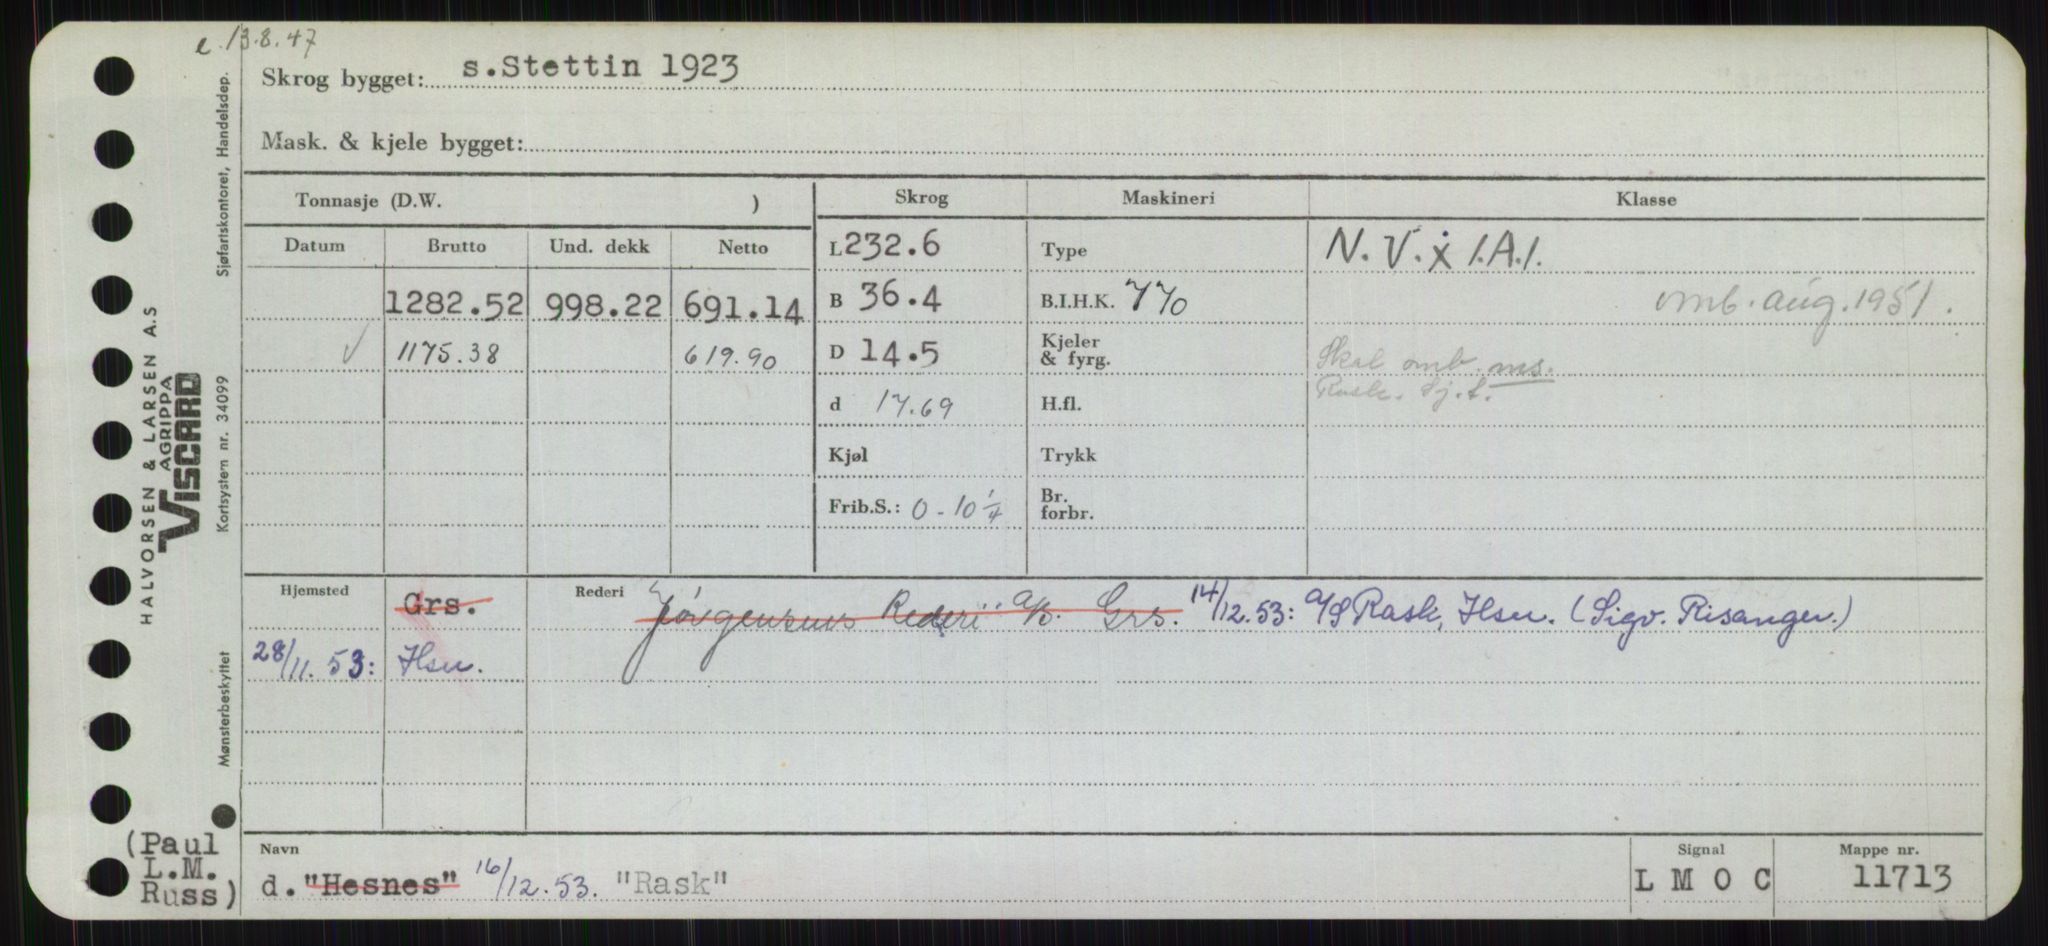 e. 13.8.47
Skrog bygget: s.Stettin 1923
Mask. & kjele bygget:
Tonnasje (D.W. )
Skrog
Maskineri
Klasse
Datum Brutto Und. dekk Netto
L 232.6
Type
N. V. ẋ 1.A.1.
1282.52 998.22 691.14
B 36.4
B.I.H.K. 770
omb. aug. 1951.
√ 1175.38 619.90
D 14.5
Kjeler
& fyrg.
Skal omb. ms.
Rask. Sj.f.
d 17.69
H.fl.
Kjøl
Trykk
Frib.S.: 0-10 1/4
Br.
forbr.
Hjemsted Grs. Rederi Jörgensens Rederi A/S. Grs. 14/12.53: A/S Rask, Hsn. (Sigv. Risanger.)
28/11.53: Hsn.
Navn
d. "Hesnes" 16/12.53. "Rask"
Signal
L M O C
Mappe nr.
11713
(Paul
L.M.
Russ)
HALVORSEN & LARSEN A.S
AGRIPPA
VISCARD
Sjøfartskontoret, Handelsdep.
Kortsystem nr. 34099
Mønsterbeskyttet